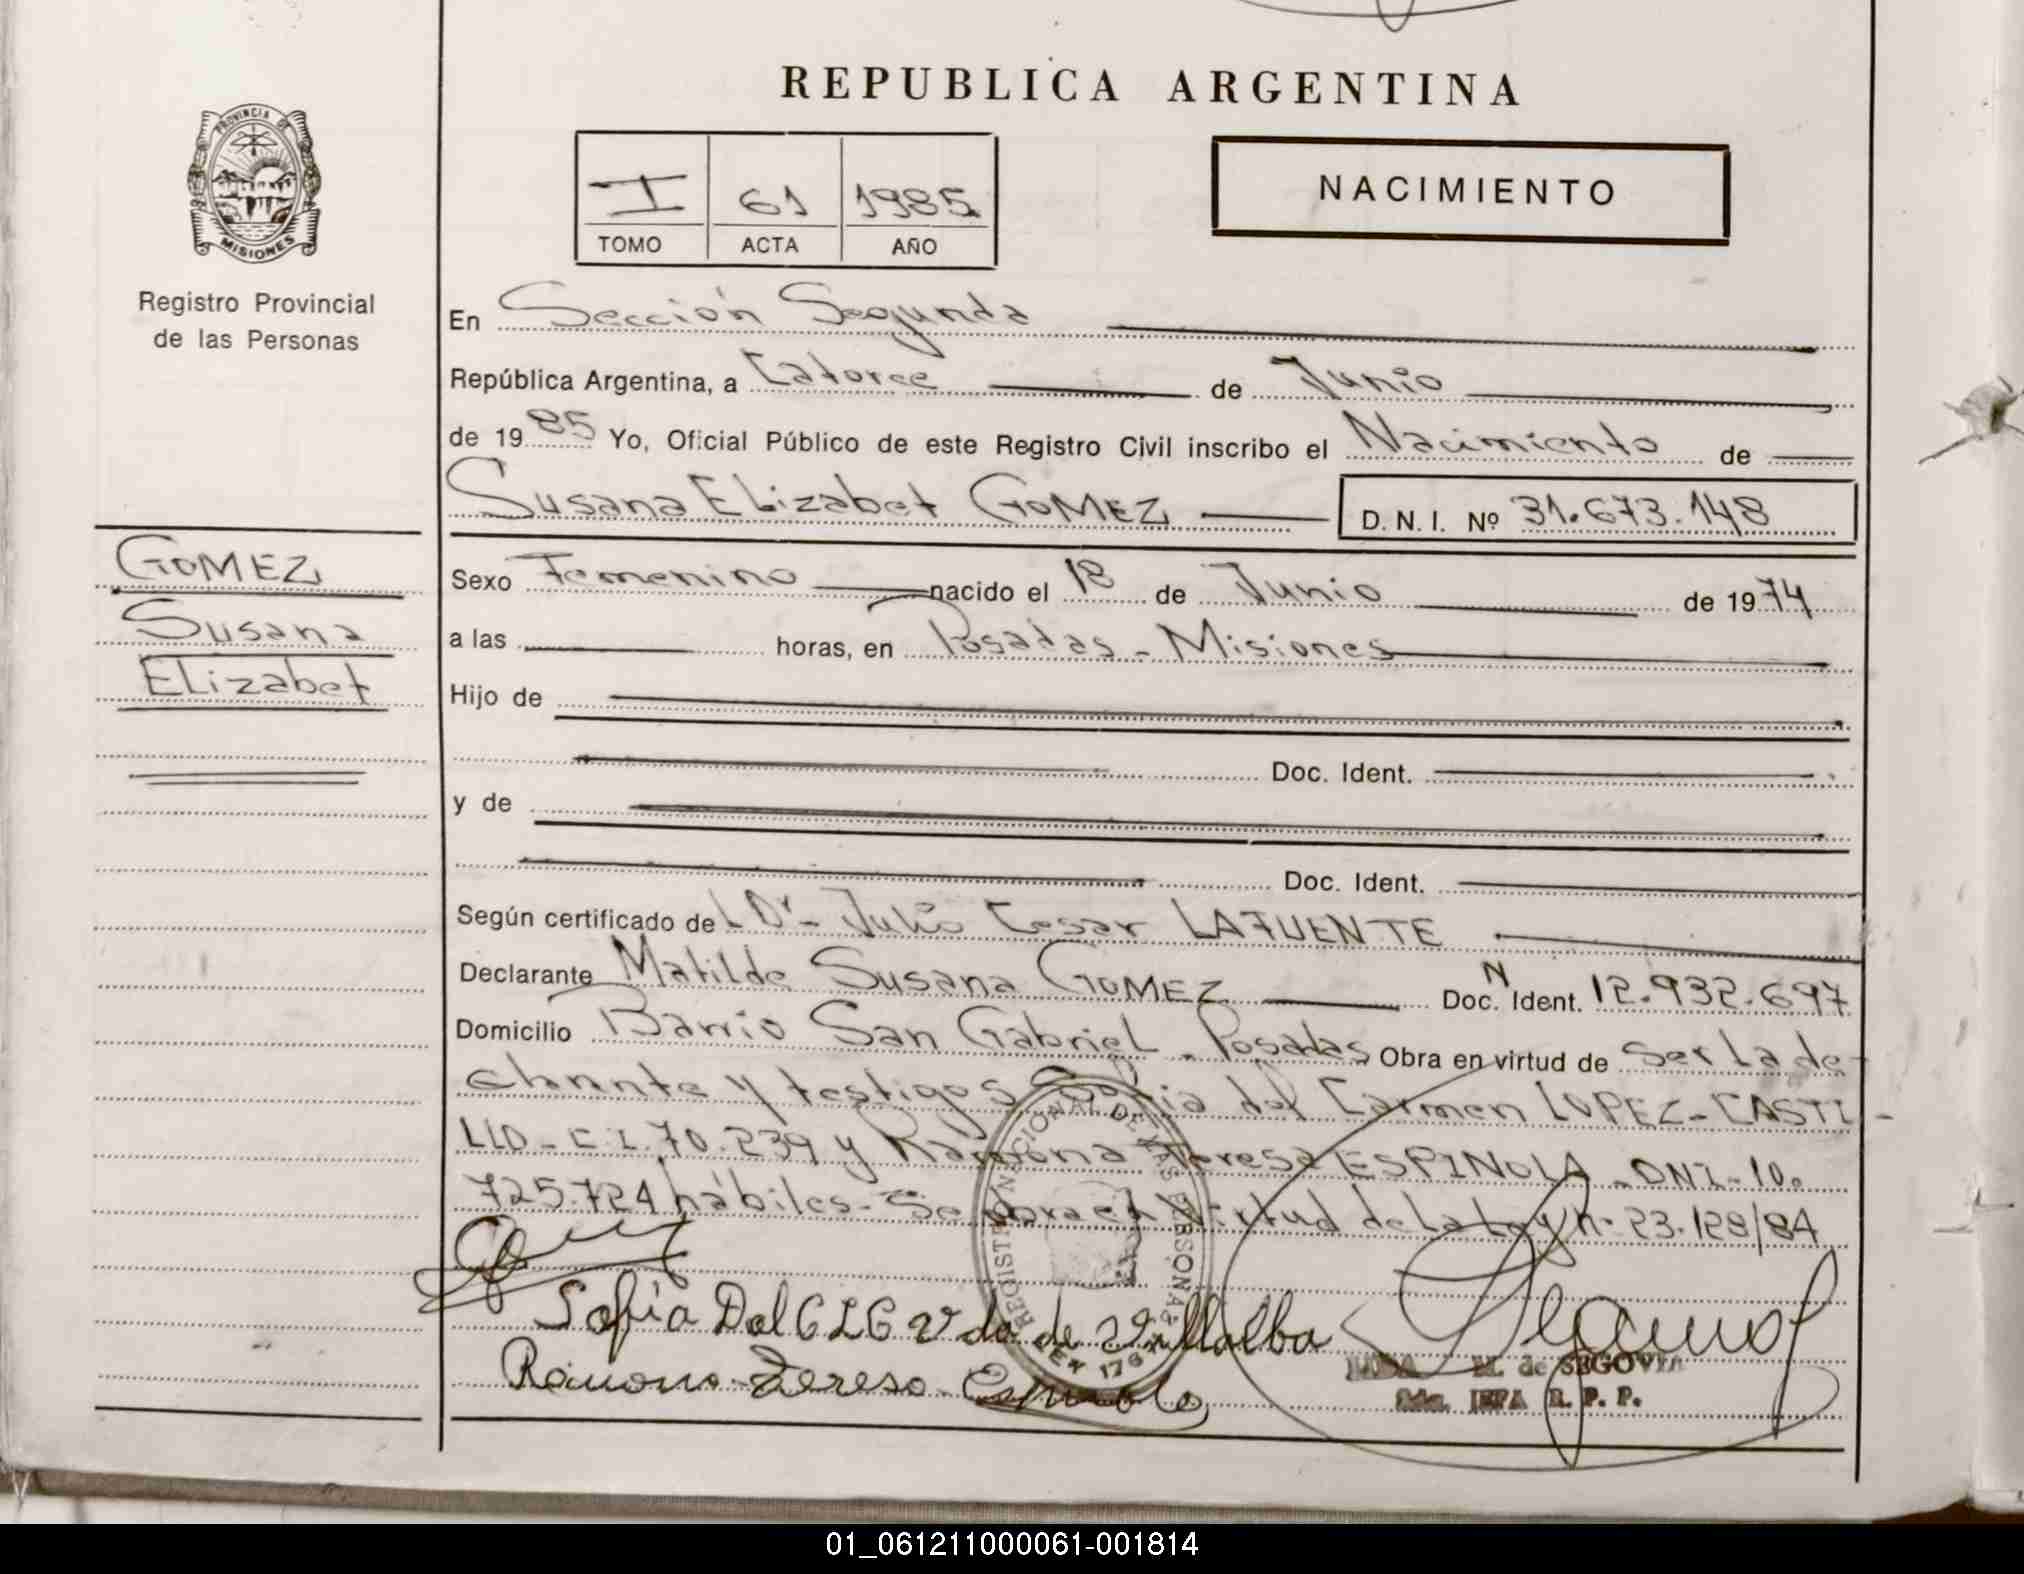 REPUBLICA ARGENTINA
PROVINCIA DE
MISIONES
Registro Provincial
de las Personas
I 61 1985
TOMO ACTA AÑO
NACIMIENTO
En Sección Segunda
República Argentina, a Catorce de Junio
de 1985 Yo, Oficial Público de este Registro Civil inscribo el Nacimiento de
Susana Elizabet GOMEZ D. N. I. Nº 31.673.148
GOMEZ
Susana
Elizabet
Sexo Femenino nacido el 18 de Junio de 1974
a las horas, en Posadas - Misiones
Hijo de
Doc. Ident.
y de
Doc. Ident.
Según certificado de L Dr- Julio Cesar LAFUENTE
Declarante Matilde Susana GOMEZ Doc. N Ident. 12.932.697
Domicilio Barrio San Gabriel - Posadas Obra en virtud de ser la de-
clarante y testigos Sofia del Carmen LOPEZ - CASTI-
LLO - C.I. 70.239 y Ramona Teresa ESPINOLA - DNI - 10.
725.724 hábiles - Se labora en virtud de la Ley nº 23.128/84
REGISTRO NACIONAL DE LAS PERSONAS
Sofía Del C L C Vda de Villalba
Ramona Teresa Espinola
M. de SEGOVIA
R. P. P.
01_061211000061-001814